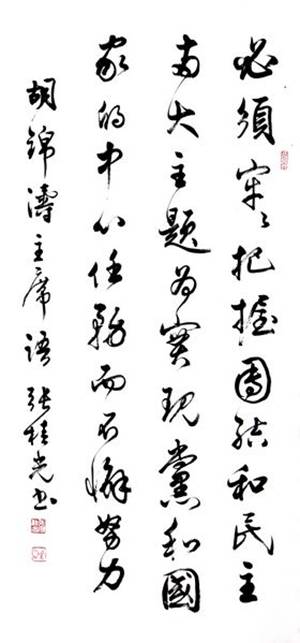 必須牢々把握團結和民主
兩大主題為實現黨和國
家的中心任務而不懈努力
胡錦濤主席語 張桂光書